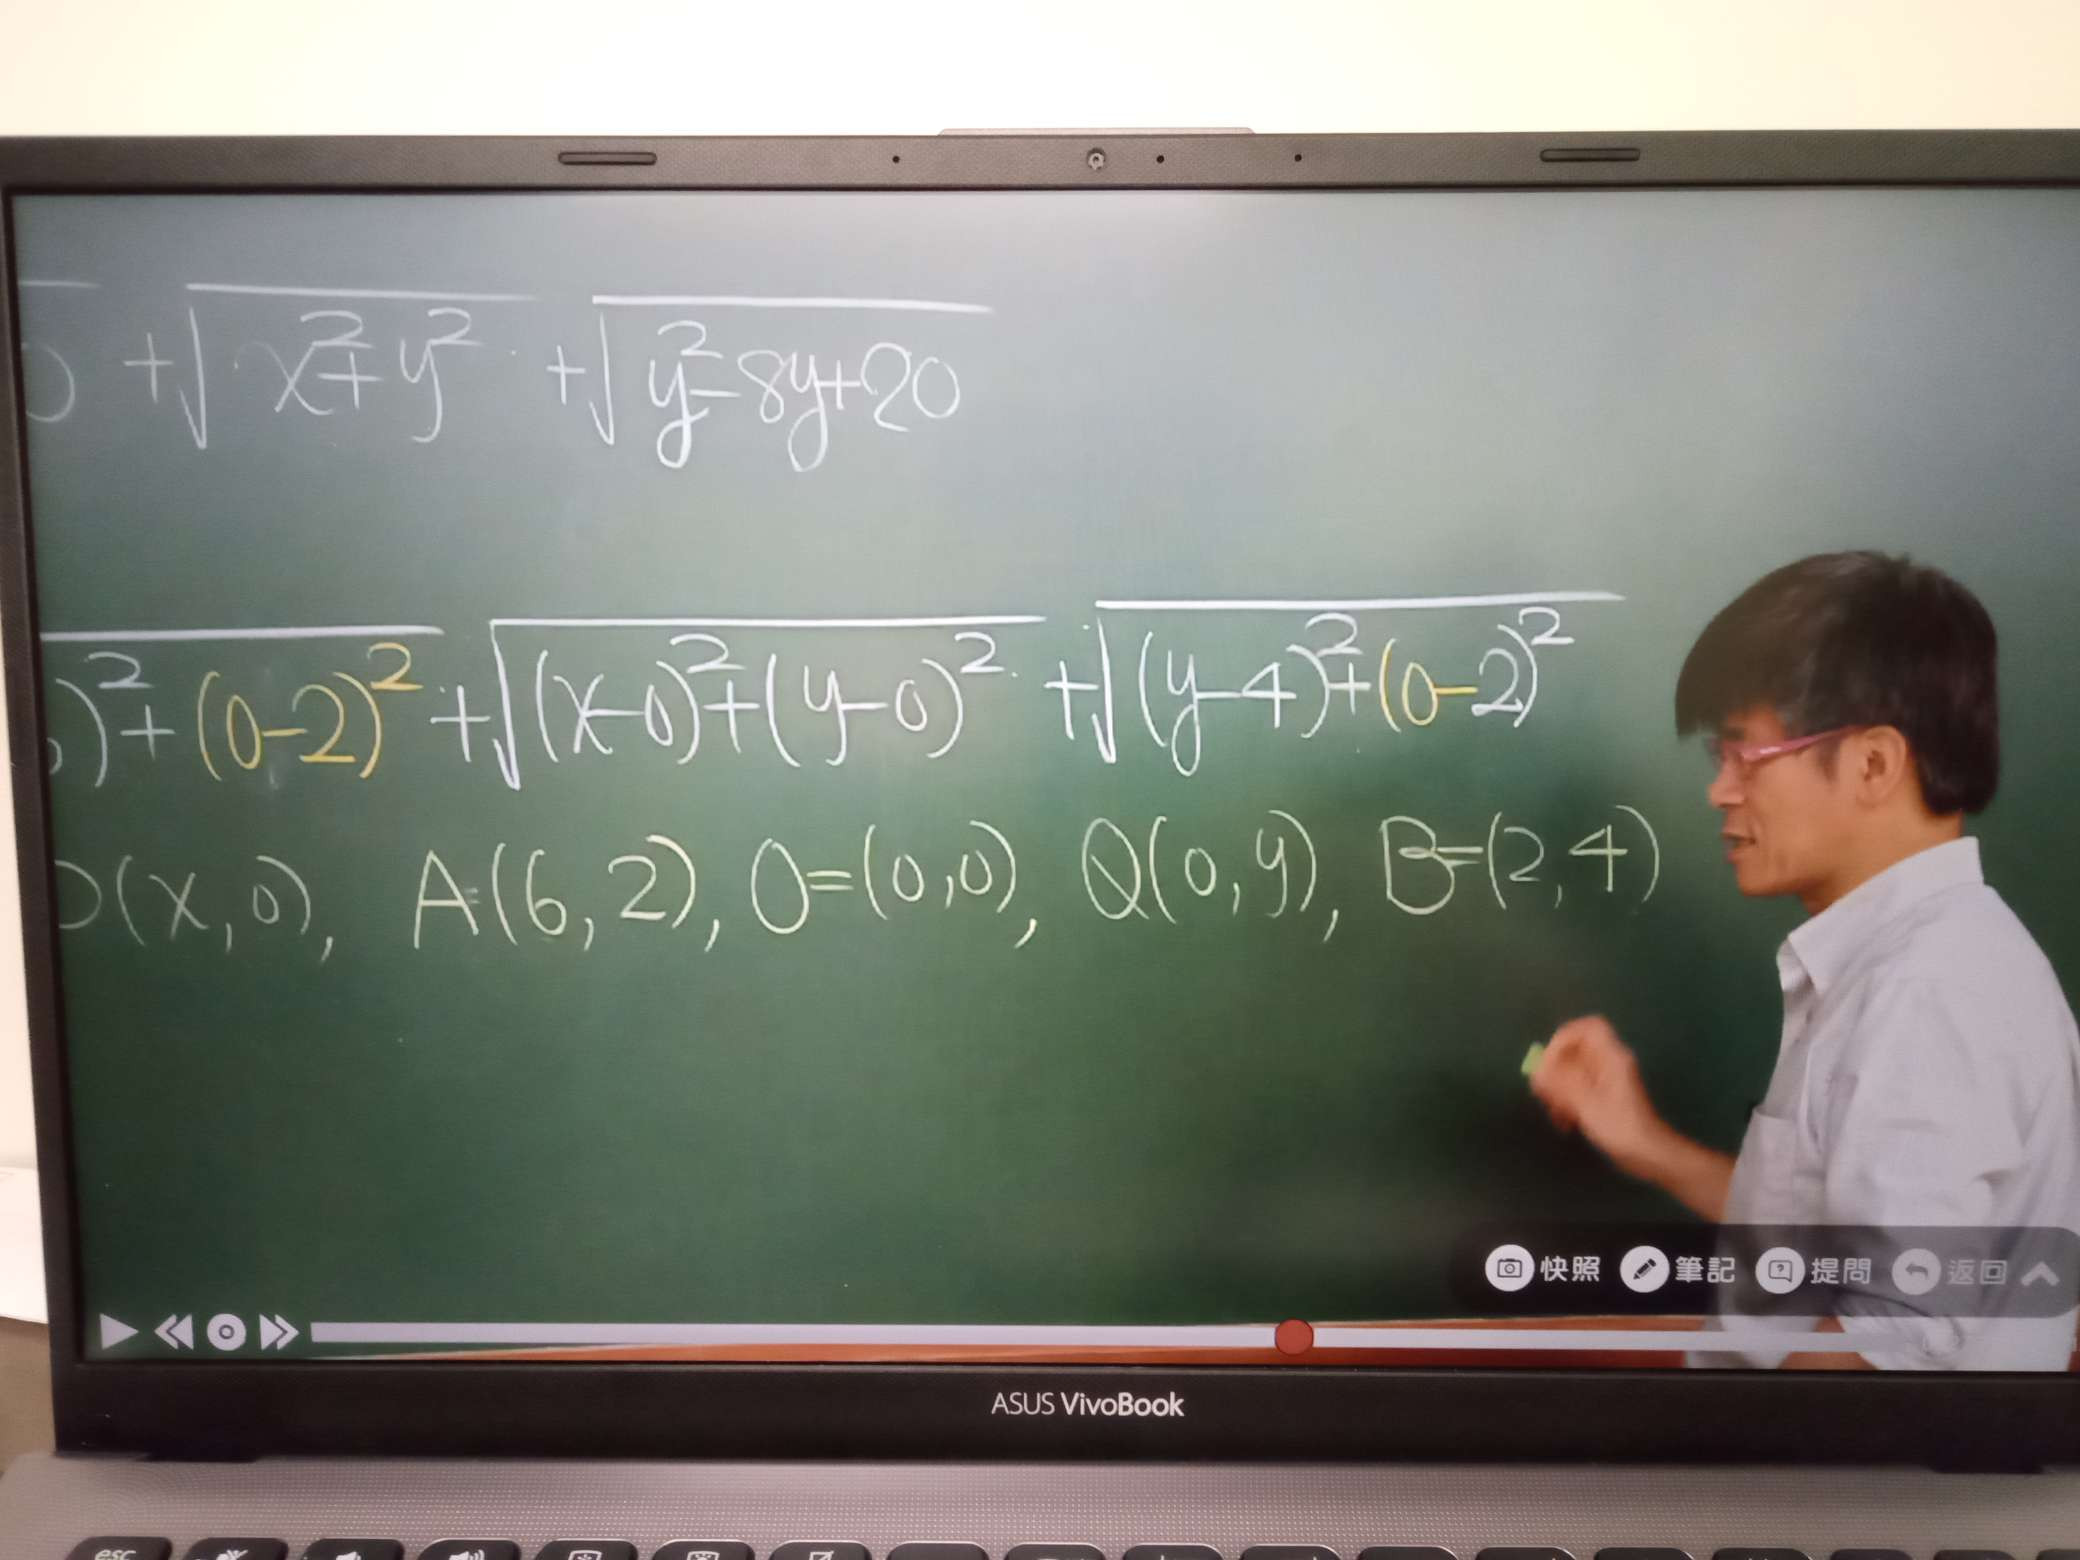 0 + √x²+y² + √y²-8y+20
)²+(0-2)² + √(x-0)²+(y-0)² + √(y-4)²+(0-2)²
P(x,0), A=(6,2), O=(0,0), Q(0,y), B=(2,4)
快照 筆記 提問 返回
ASUS VivoBook
esc